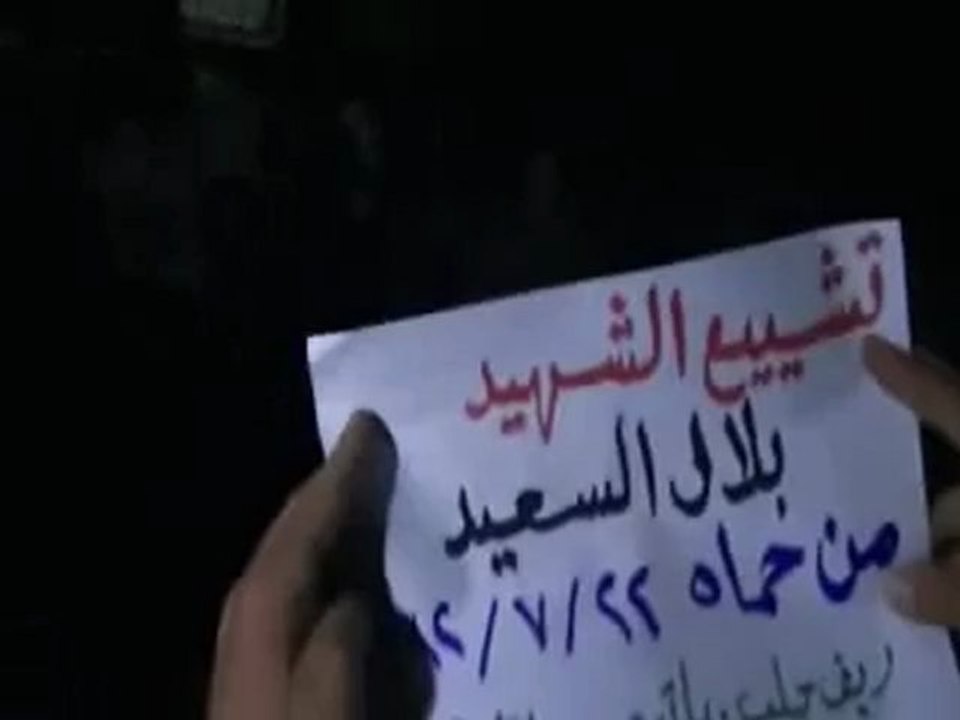 تشييع الشهيد
بلال السعيد
من حماه ٢٢/٧/١٢
ريف حلب